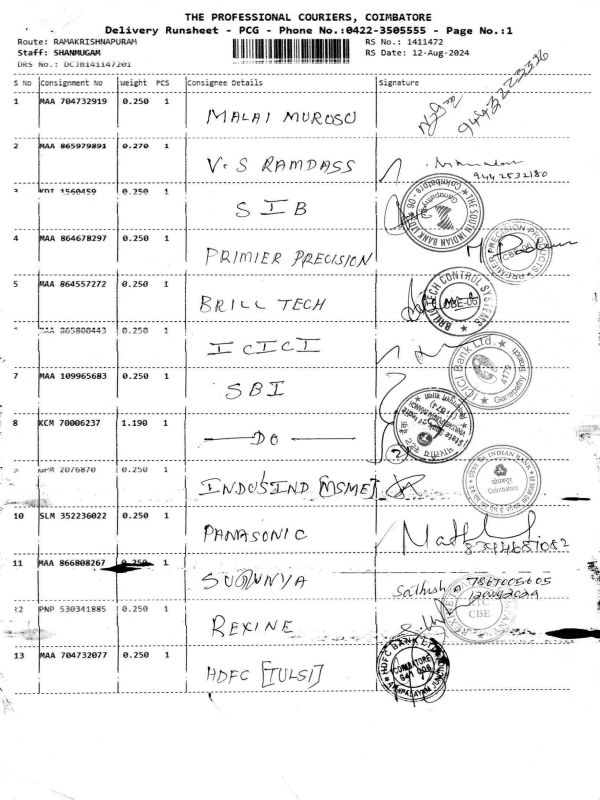 THE PROFESSIONAL COURIERS, COIMBATORE
Delivery Runsheet - PCG - Phone No.:0422-3505555 - Page No.:1
Route: RAMAKRISHNAPURAM RS No.: 1411472
Staff: SHANMUGAM RS Date: 12-Aug-2024
DRS No.: DCJB141147201
S No Consignment No Weight PCS Consignee Details Signature
1 MAA 704732919 0.250 1 MALAI MUROSU 9443223336
2 MAA 865979891 0.270 1 V.S RAMDASS
9442532180
1560459 0.250 1 SIB
THE SOUTH INDIAN BANK LTD Ganapathy Coimbatore - 06
4 MAA 864678297 0.250 1 PRIMIER PRECISION
PREMIER PRECISION PRODUCTS
5 MAA 864557272 0.250 1 BRILL TECH
BRILLIOTECH CONTROL SYSTEMS CBE-06
MAA 865800443 0.250 1 ICICI
ICICI Bank Ltd. Ganapathy Branch
7 MAA 109965683 0.250 1 SBI
8 KCM 70006237 1.190 1 DO
State Bank of India
2076870 0.250 1 INDUSIND [MSME]
INDIAN BANK Coimbatore
10 SLM 352236022 0.250 1 PANASONIC
8344687052
11 MAA 866808267 0.250 1 SUGUNYA
Sathish 7867005605
12/08/2024
12 PNP 530341885 0.250 1 REXINE
CBE
13 MAA 704732077 0.250 1 HDFC [TULSI]
HDFC BANK LTD COIMBATORE 641 006